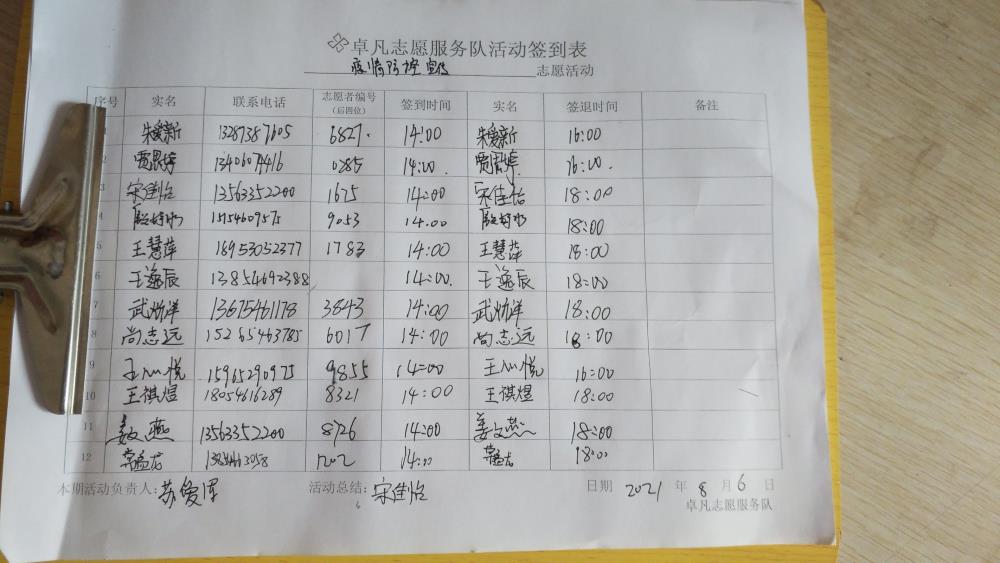 卓凡志愿服务队活动签到表
疫情防控宣传 志愿活动
序号 实名 联系电话 志愿者编号（后四位） 签到时间 实名 签退时间 备注
朱爱新 13287387605 6827 14:00 朱爱新 16:00
2 贾思婷 13406074416 0285 14:00 贾思婷 16:00
3 宋佳怡 13563352200 1675 14:00 宋佳怡 18:00
4 15154609575 9053 14:00 18:00
5 王慧萍 18953052377 1783 14:00 王慧萍 18:00
6 王逸辰 13854692388 14:00 王逸辰 18:00
7 武炳洋 13675461178 3843 14:00 武炳洋 18:00
8 尚志远 15265463785 6017 14:00 尚志远 18:00
9 王心悦 15965290975 9855 14:00 王心悦 16:00
10 王祺煜 18054616289 8321 14:00 王祺煜 18:00
11 姜文燕 13563352200 8126 14:00 姜文燕 18:00
12 14:00 18:00
本期活动负责人: 苏爱军 活动总结: 宋佳怡 日期 2021 年 8 月 6 日
卓凡志愿服务队